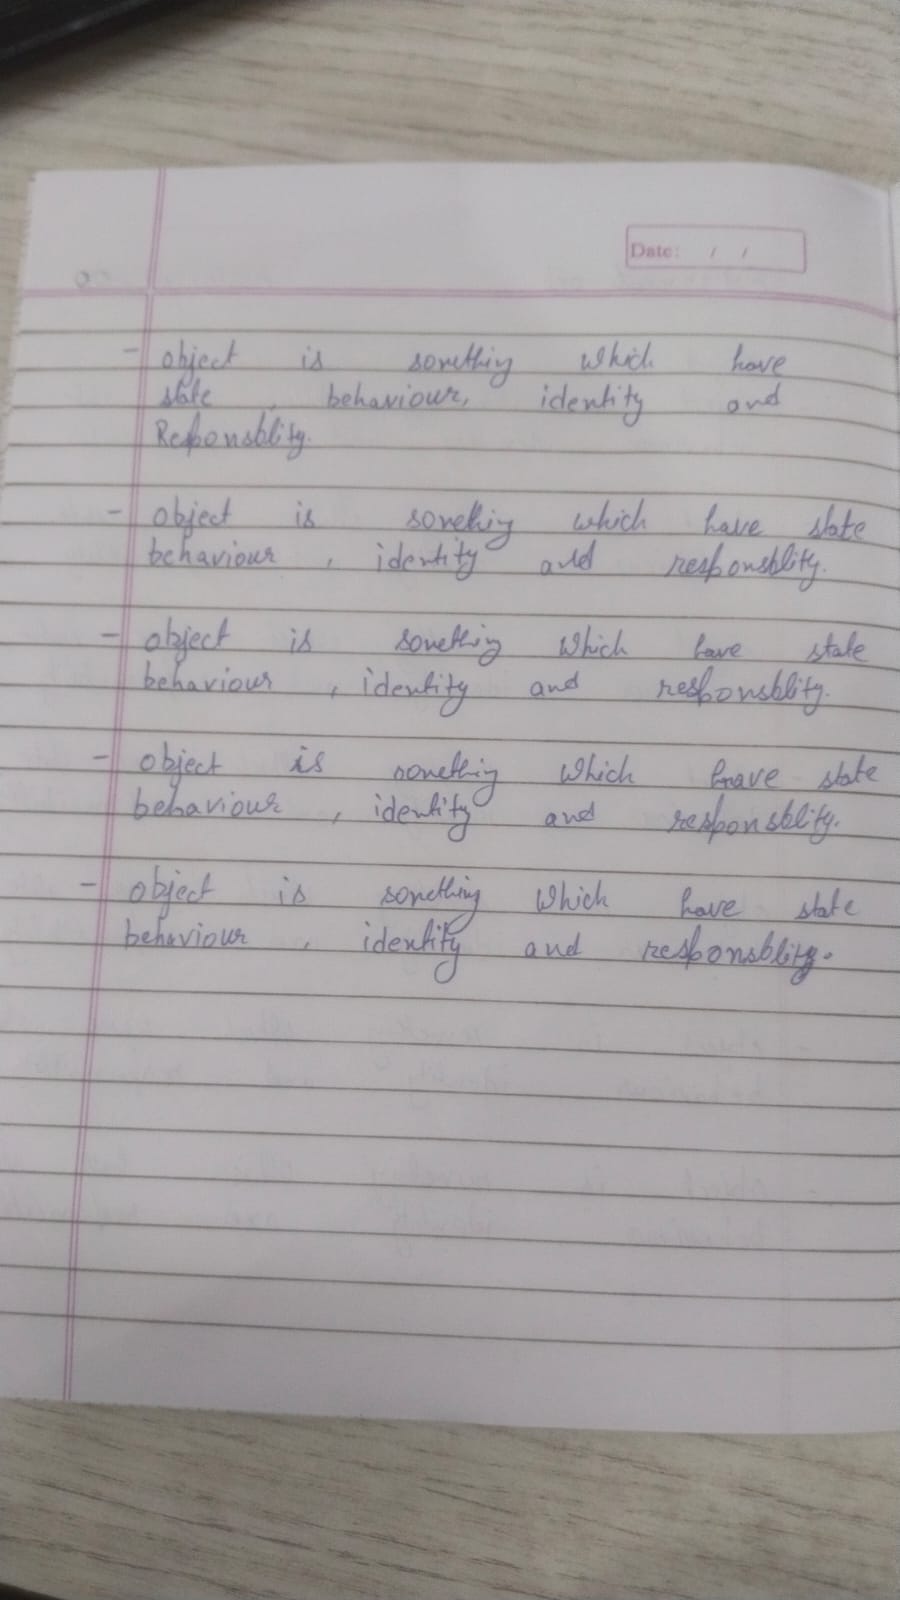 Date: / /
- object is something which have
state , behaviour, identity and
Responsblity.
- object is something which have state
behaviour , identity and responsblity.
- object is something which have state
behaviour , identity and responsblity.
- object is something which have state
behaviour , identity and responsblity.
- object is something which have state
behaviour , identity and responsblity.